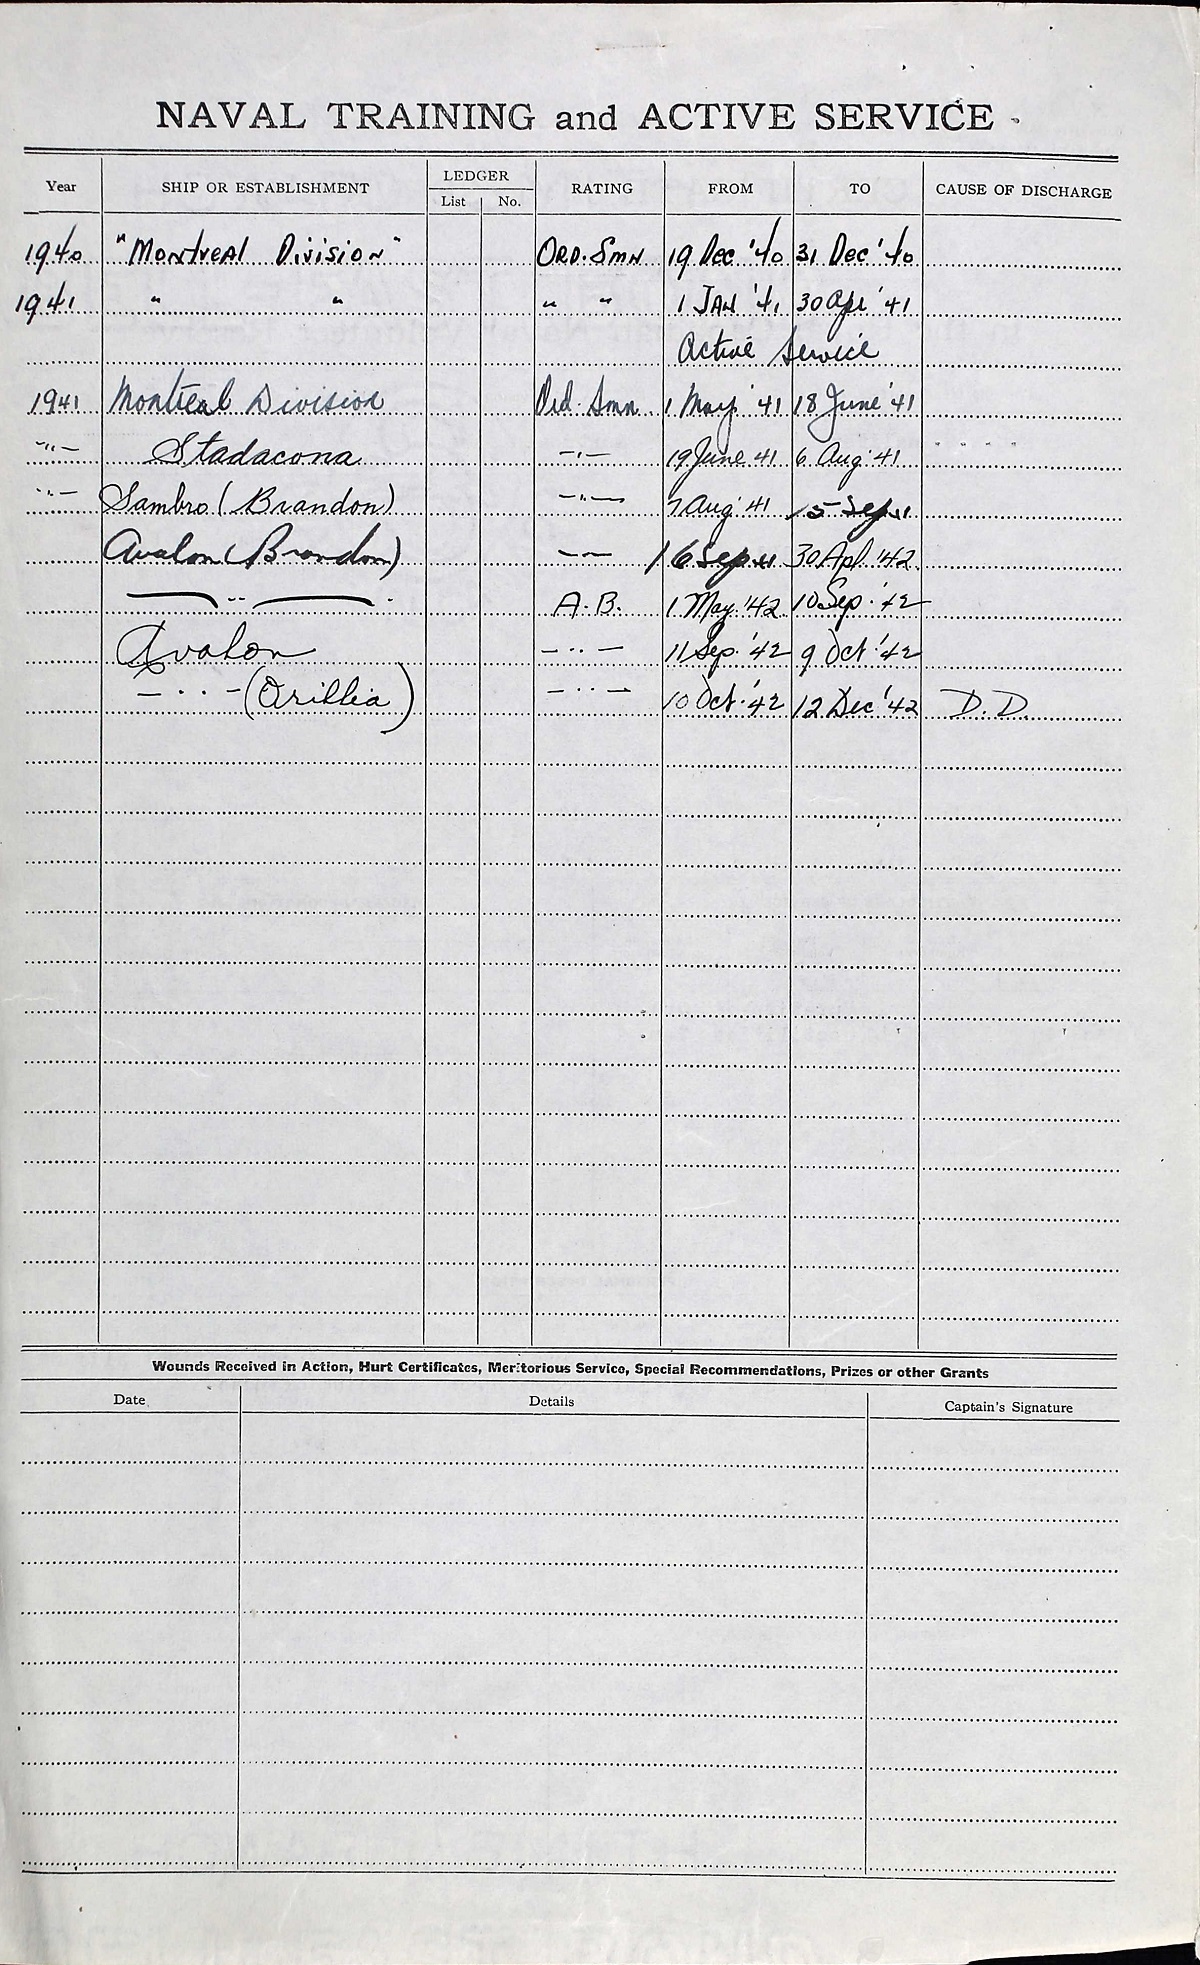 NAVAL TRAINING and ACTIVE SERVICE
Year SHIP OR ESTABLISHMENT LEDGER List No. RATING FROM TO CAUSE OF DISCHARGE
1940 "Montreal Division" ORD. Smn 19 Dec '40 31 Dec '40
1941 " " " " 1 JAN '41 30 Apr '41
Active Service
1941 Montreal Division Ord. Smn 1 May '41 18 June '41
-"- Stadacona -"- 19 June 41 6 Aug '41 " " " "
-"- Sambro (Brandon) -"- 7 Aug '41 15 Sep 41
Avalon (Brandon) -"- 16 Sep 41 30 Apl '42
-"- A.B. 1 May '42 10 Sep. '42
Avalon -"- 11 Sep. '42 9 Oct '42
-"- (Orillia) -"- 10 Oct '42 12 Dec '42 D.D.
Wounds Received in Action, Hurt Certificates, Meritorious Service, Special Recommendations, Prizes or other Grants
Date Details Captain's Signature